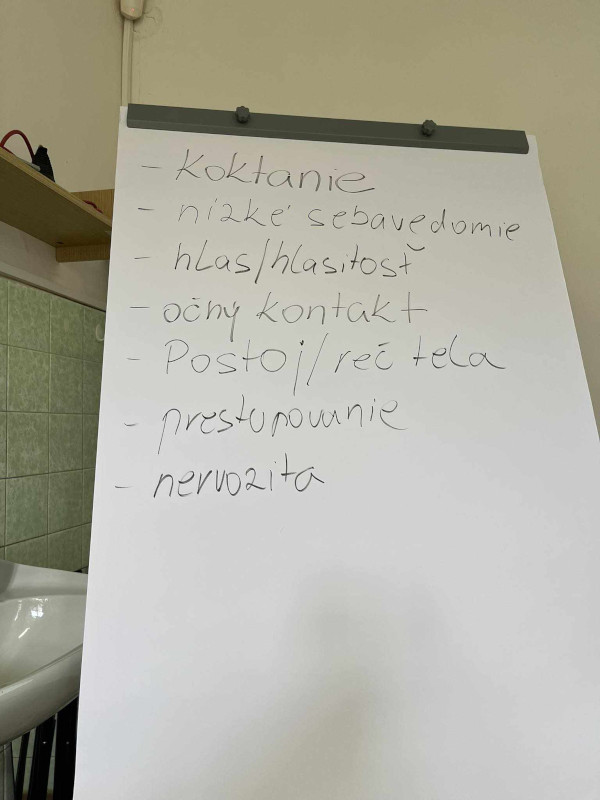 - Koktanie
- nízke sebavedomie
- hlas/hlasitosť
- očný kontakt
- Postoj/reč tela
- prestupovanie
- nervozita